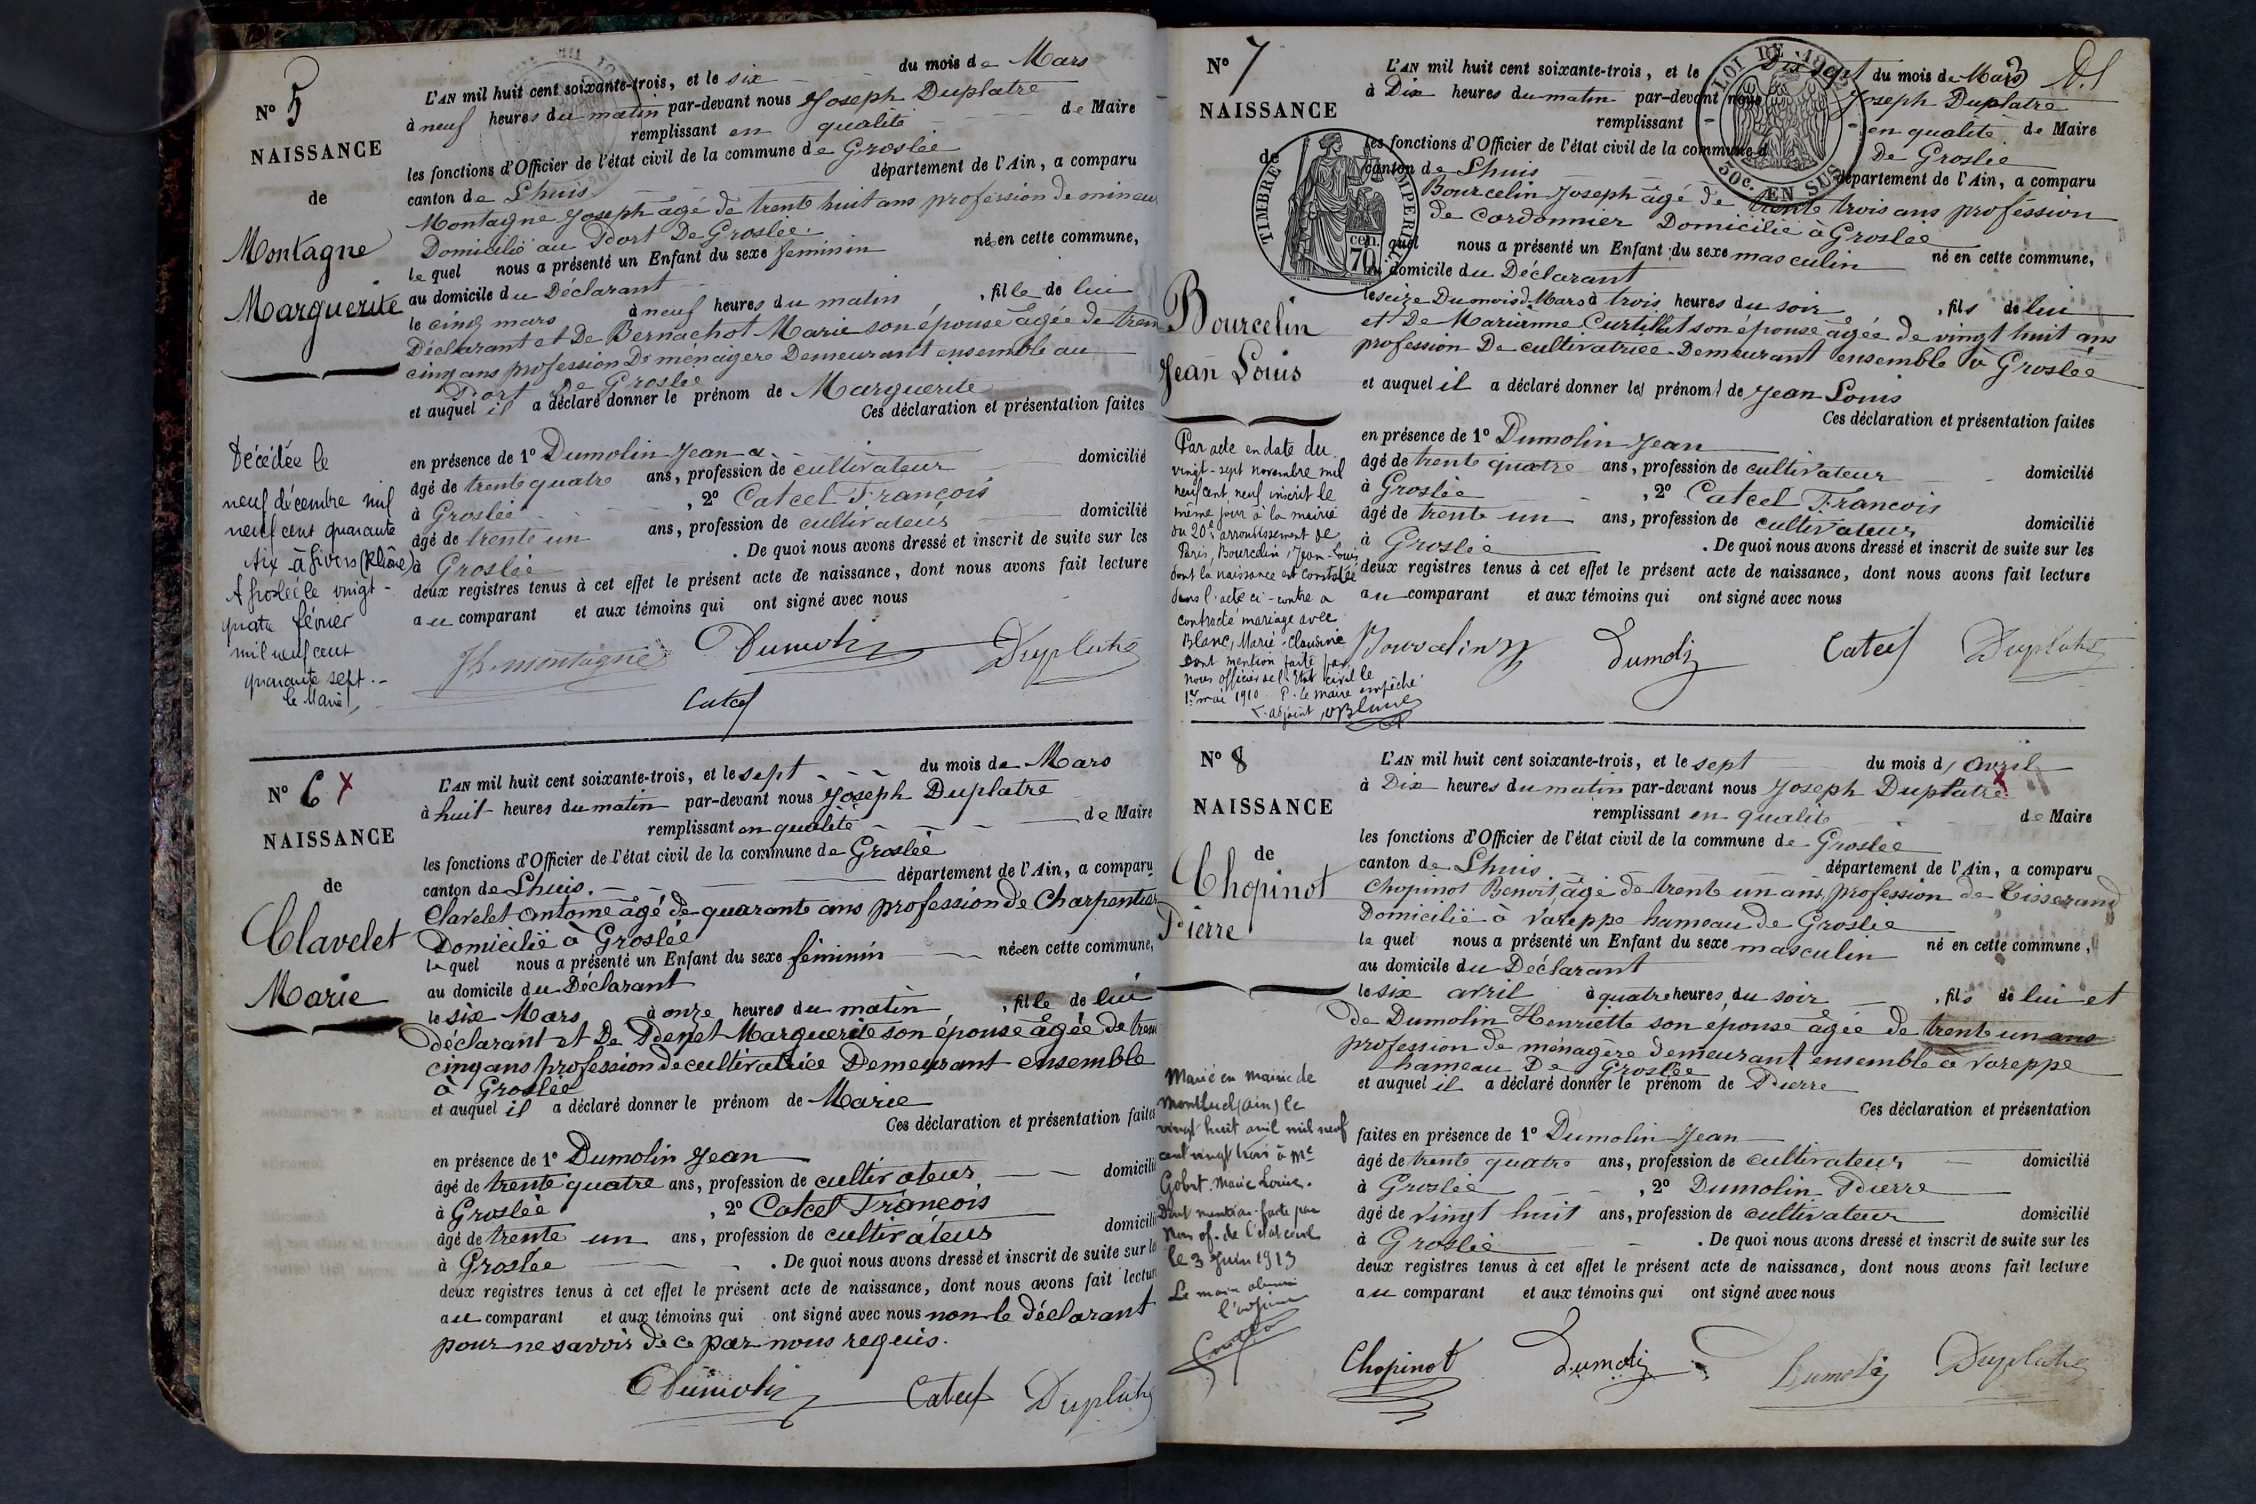 N° 5
NAISSANCE
de
Montagne
Marguerite
L'AN mil huit cent soixante-trois, et le six du mois de Mars
à neuf heures du matin par-devant nous Joseph Duplatre
remplissant en qualité de Maire
les fonctions d'Officier de l'état civil de la commune de Groslée
canton de Lhuis département de l'Ain, a comparu
Montagne Joseph âgé de trente huit ans profession de mineur
Domicilié au Port De Groslée.
le quel nous a présenté un Enfant du sexe féminin née en cette commune,
au domicile du Déclarant
le cinq mars à neuf heures du matin, fille de lui
Déclarant et De Bernachot Marie son épouse âgée de trente
cinq ans profession De ménagère Demeurant ensemble au
Port De Groslée
et auquel il a déclaré donner le prénom de Marguerite
Ces déclaration et présentation faites
en présence de 1° Dumolin Jean
âgé de trente quatre ans, profession de cultivateur domicilié
à Groslée, 2° Catcel François
âgé de trente un ans, profession de cultivateurs domicilié
à Groslée. De quoi nous avons dressé et inscrit de suite sur les
deux registres tenus à cet effet le présent acte de naissance, dont nous avons fait lecture
au comparant et aux témoins qui ont signé avec nous
Jh. montagne Dumolin Duplatre
Catcel
Décédée le
neuf décembre mil
neuf cent quarante
six à Givors (Rhône)
A Groslée le vingt-
quatre février
mil neuf cent
quarante sept.-
le Maire
N° 6 x
NAISSANCE
de
Clavelet
Marie
L'AN mil huit cent soixante-trois, et le sept du mois de Mars
à huit heures du matin par-devant nous Joseph Duplatre
remplissant en qualité de Maire
les fonctions d'Officier de l'état civil de la commune de Groslée
canton de Lhuis. département de l'Ain, a comparu
Clavelet Antoine âgé de quarante ans profession de Charpentier
Domicilié à Groslée
le quel nous a présenté un Enfant du sexe féminin née en cette commune,
au domicile du Déclarant
le six Mars à onze heures du matin, fille de lui
déclarant et De Marguerite son épouse âgée de trente
cinq ans profession de cultivatrice Demeurant ensemble
à Groslée
et auquel il a déclaré donner le prénom de Marie
Ces déclaration et présentation faites
en présence de 1° Dumolin Jean
âgé de trente quatre ans, profession de cultivateur domicilié
à Groslée, 2° Catcel François
âgé de trente un ans, profession de cultivateurs domicilié
à Groslée. De quoi nous avons dressé et inscrit de suite sur les
deux registres tenus à cet effet le présent acte de naissance, dont nous avons fait lecture
au comparant et aux témoins qui ont signé avec nous non le déclarant
pour ne savoir de ce par nous requis.
Dumolin Catcel Duplatre
N° 7
NAISSANCE
de
TIMBRE IMPERIAL
cen. 70
LOI DE 1862
50c. EN SUS
Bourcelin
Jean Louis
L'AN mil huit cent soixante-trois, et le Dix sept du mois de Mars
à Dix heures du matin par-devant nous Joseph Duplatre
remplissant en qualité de Maire
les fonctions d'Officier de l'état civil de la commune d De Groslée
canton de Lhuis département de l'Ain, a comparu
Bourcelin Joseph âgé de trente trois ans profession
de Cordonnier Domicilié à Groslée
quel nous a présenté un Enfant du sexe masculin né en cette commune,
au domicile du Déclarant
le seize Du mois d. Mars à trois heures du soir, fils de lui
et De Marianne Curtillet son épouse âgée de vingt huit ans
profession De cultivatrice Demeurant ensemble à Groslée
et auquel il a déclaré donner les prénoms de Jean Louis
Ces déclaration et présentation faites
en présence de 1° Dumolin Jean
âgé de trente quatre ans, profession de cultivateur domicilié
à Groslée, 2° Catcel Francois
âgé de trente un ans, profession de cultivateurs domicilié
à Groslée. De quoi nous avons dressé et inscrit de suite sur les
deux registres tenus à cet effet le présent acte de naissance, dont nous avons fait lecture
au comparant et aux témoins qui ont signé avec nous
Bourcelin Dumolin Catcel Duplatre
Par acte en date du
vingt-sept novembre mil
neuf cent neuf inscrit le
même jour à la mairie
du 20e arrondissement de
Paris, Bourcelin, Jean-Louis
dont la naissance est constatée
dans l'acte ci-contre a
contracté mariage avec
Blanc, Marie-Claudine
Dont mention faite par
nous officier de l'Etat civil le
1er mai 1910. P. le maire empêché
L'adjoint Blanc
N° 8
NAISSANCE
de
Chopinot
Pierre
L'AN mil huit cent soixante-trois, et le sept du mois d'avril
à Dix heures du matin par-devant nous Joseph Duplatre
remplissant en qualité de Maire
les fonctions d'Officier de l'état civil de la commune de Groslée
canton de Lhuis département de l'Ain, a comparu
Chopinot Benoit âgé de trente un ans, profession de Tisserand
Domicilié à Vareppe hameau de Groslée
le quel nous a présenté un Enfant du sexe masculin né en cette commune,
au domicile du Déclarant
le six avril à quatre heures du soir, fils de lui et
de Dumolin Henriette son épouse âgée de trente un ans
profession de ménagère demeurant ensemble à Vareppe
hameau De Groslée
et auquel il a déclaré donner le prénom de Pierre
Ces déclaration et présentation
faites en présence de 1° Dumolin Jean
âgé de trente quatre ans, profession de cultivateur domicilié
à Groslée, 2° Dumolin Pierre
âgé de vingt huit ans, profession de cultivateur domicilié
à Groslée. De quoi nous avons dressé et inscrit de suite sur les
deux registres tenus à cet effet le présent acte de naissance, dont nous avons fait lecture
au comparant et aux témoins qui ont signé avec nous
Chopinot Dumolin Dumolin Duplatre
Marié en mairie de
Montluel (Ain) le
vingt huit avril mil neuf
cent vingt trois à Me
Gobet Marie Louise.
Dont mention faite par
Nous of. de l'état civil
le 3 Juin 1913
Le maire
l'adjoint